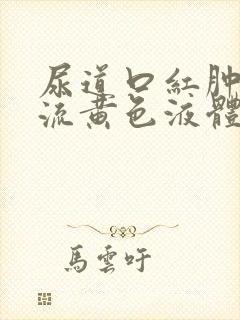 尿道口紅肿
流黄色液體
馬雲吁